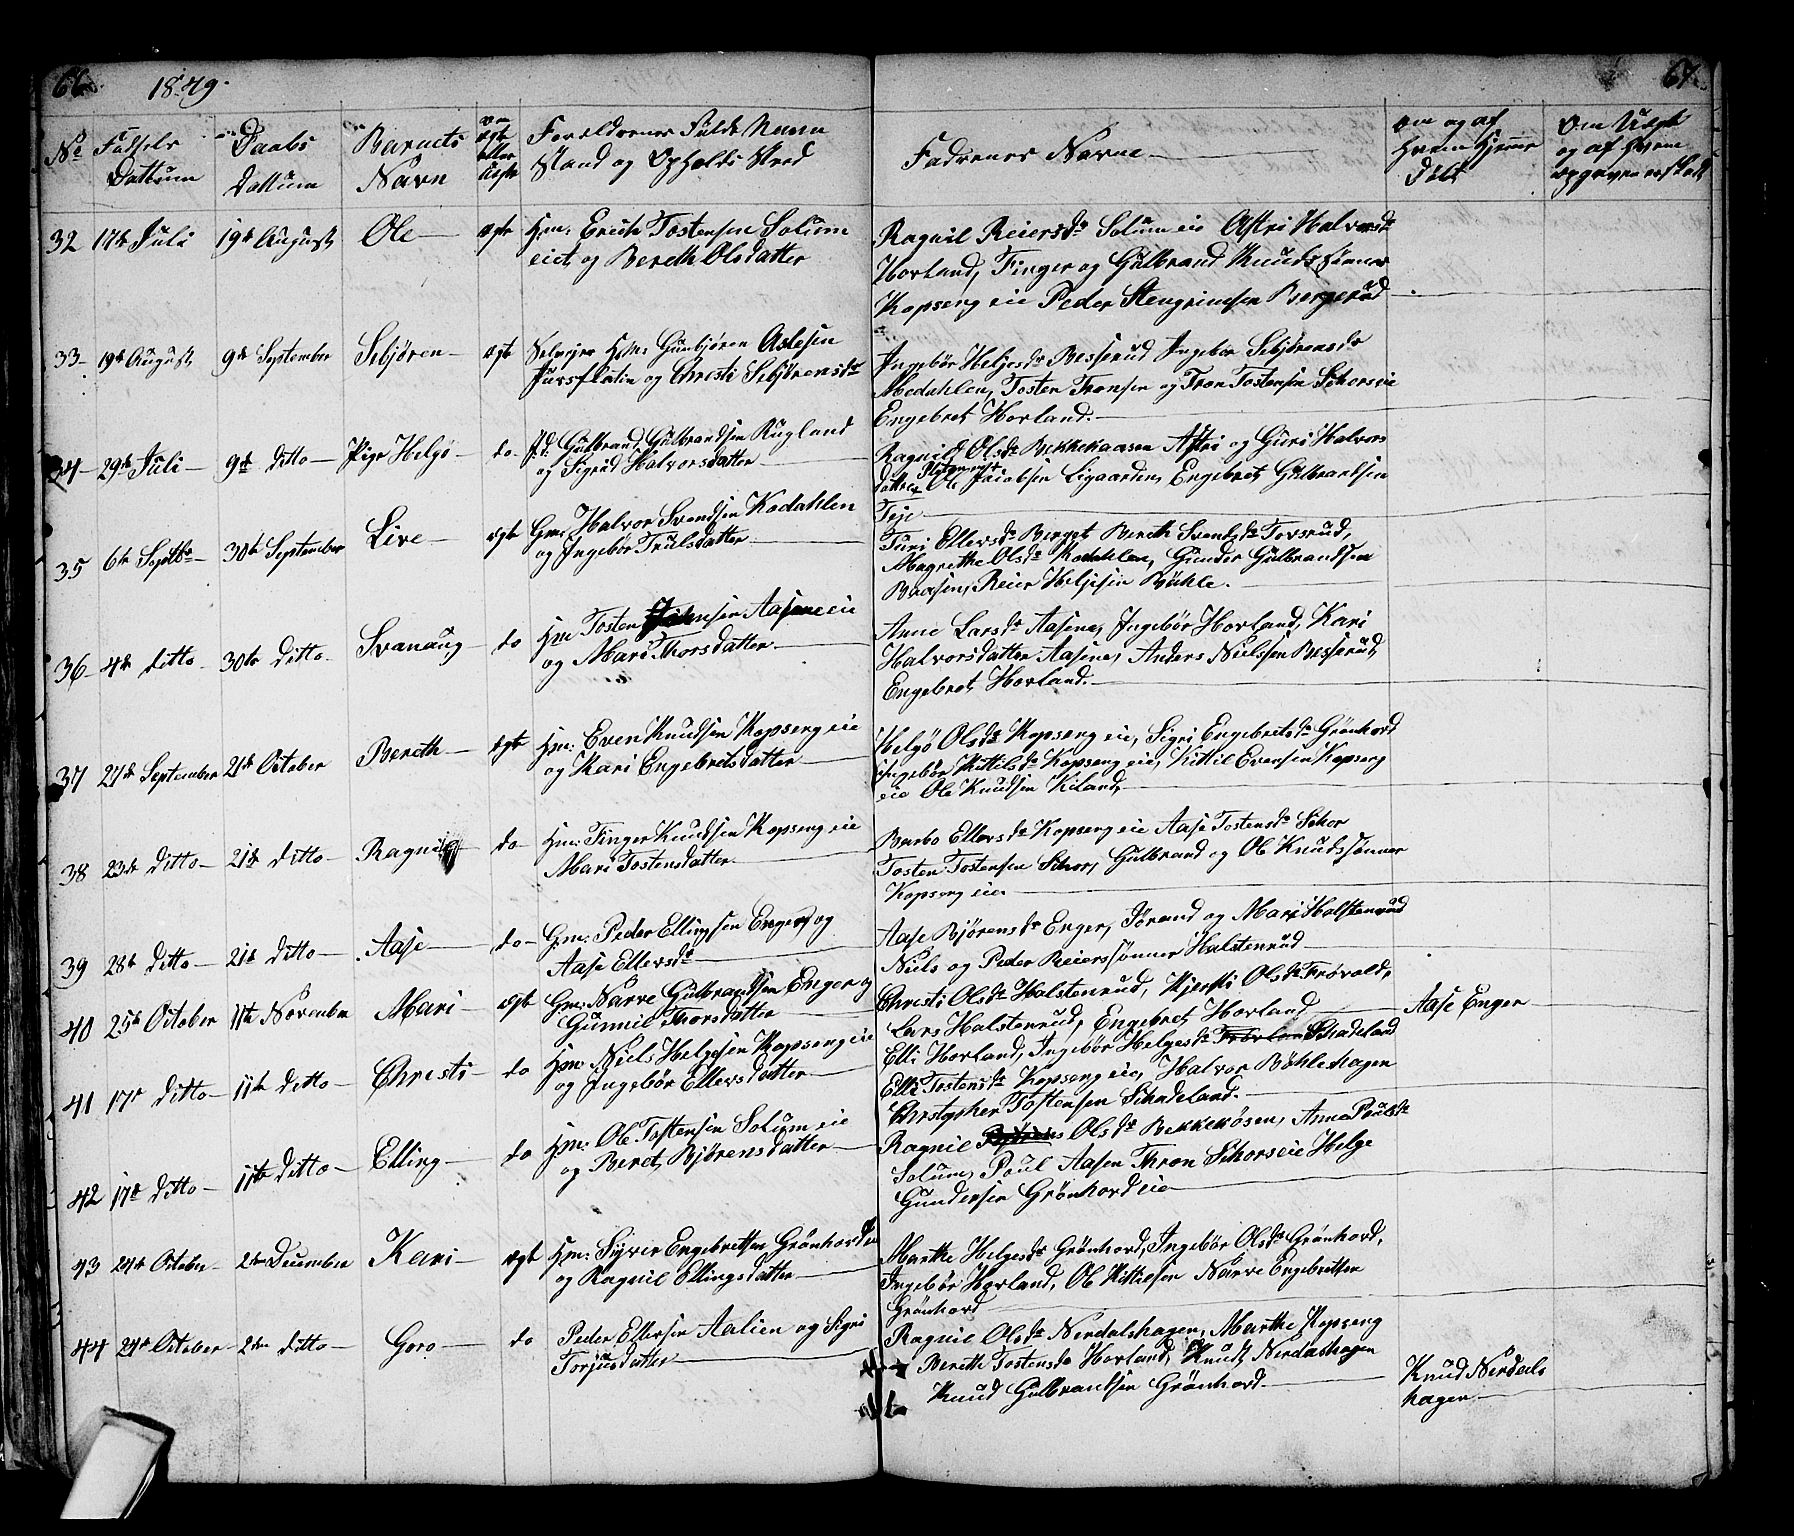 66. 1849. 67.
No Fødsels Dattum
Daabs Dattum
Barnets Navn
om ægte eller uægte
Forældrenes Fulde Navn Stand og Opholds Sted
Faddrenes Navne
om og af Hvem Hjemme Døbt
32 17de Juli 19de August Ole ægte Hm: Erich Tostensen Solum
eiet og Bereth Olsdatter
Ragnil Reiersdr Solum eie Astri Halvorsdr
Horland, Finger og Gulbrand Knudssønner
Kopseng eie Peder Stengrimsen Bergerud
33 19de August 9de September Sebjøren ægte Selveier Gunbjøren Aslesen
Jursflatin og Christi Sebjørensdr
Ingebør Helgesdr Besserud Ingebor Sebjørensdr
Medahlen, Tosten Tronsen og Tron Tostensen Schorseie
Engebret Horland.
34 29de Juli 9de ditto Pige Helgø do Gulbrand Gulbrandsen Rugland
og Sigrid Halvorsdatter
Ragnild Olsdr Bekkekaasen Astri og Guri Halvors
dattre Ole Jacobsen Ligaarden, Engebret Gulbrandsen
Teje
35 6te Septbr 30te September Live ægte Gm: Halvor Svendsen Kodahlen
og Ingebør Trulsdatter
Turi Ellevsdr Berget Bereth Svendsdr Tovsrud,
Magrethe Olsdr Kodahlen, Gunder Gulbrandsen
Baasen, Reier Helgesen Bøhle.
36 4de ditto 30te ditto Svanaug do Hm Tosten Aasene eie
og Mari Thorsdatter
Anne Larsdr Aasene, Ingebør Horland, Kari
Halvorsdatter Aasene, Anders Nielsen Besserud,
Engebret Horland.
37 27de September 21de October Bereth ægte Hm: Even Knudsen Kopseng eie
og Kari Engebretsdatter
Helgø Olsdr Kopseng eie, Sigri Engebretsdr Grønhord
Ingebør Kittilsdr Kopseng eie, Kittil Evensen Kopseng
eie Ole Knudsen Kiland,
38 23de ditto 21de ditto Ragnil do Hm: Finger Knudsen Kopseng eie
Mari Tostensdatter
Barbo Ellevsdr Kopseng eie Aase Tostensdr Schor
Tosten Tostensen Schor, Gulbrand og Ole Knudssønner
Kopseng eie
39 28de ditto 21de ditto Aase do Gm: Peder Ellingsen Enger og
Aase Ellevsdr
Aase Bjørensdr Enger, Jørand og Mari Halstenrud
Niels og Peder Reierssønner Halstenrud
40 25de October 11te November Mari ægte Gm: Narve Gulbrandsen Enger og
Gunnil Thorsdatter
Christi Olsdr Halstenrud, Kjersti Olsdr Frøvold,
Lars Halstenrud, Engebret Horland
Aase Enger
41 17de ditto 11te ditto Christi do Hm Niels Helgesen Kopseng eie
og Ingebør Ellevsdatter
Elli Horland, Ingebør Helgesdr Schadeland
Elli Tostensdr Kopseng eie, Halvor Bøhlehagen
Christopher Tostensen Schadeland.
42 17de ditto 11te ditto Elling do Hm: Ole Tostensen Solum eie
og Beret Bjørensdatter
Ragnil Olsdr Bekkekøsen, Anne Poulsdr
Solum, Poul Aasen Thron Schorseie Helge
Gundersen Grønhord eie
43 24de October 2den December Kari ægte Hm: Syver Engebretsen Grønhord eie
og Ragnil Ellingsdatter
Marthe Helgesdr Grønhord, Ingebør Olsdr Grønhord,
Ingebør Horland, Ole Kittelsen Narve Engebretsen
Grønhord
44 24de October 2den ditto Goro do Peder Ellefsen Aalien og Sigri
Torjusdatter
Ragnil Olsdr Nerdalshagen, Marthe Kopseng
Bereth Tostensdr Horland, Knud Nerdalshagen
Knud Gulbrandsen Grønhord
Knud Nerdals
hagen